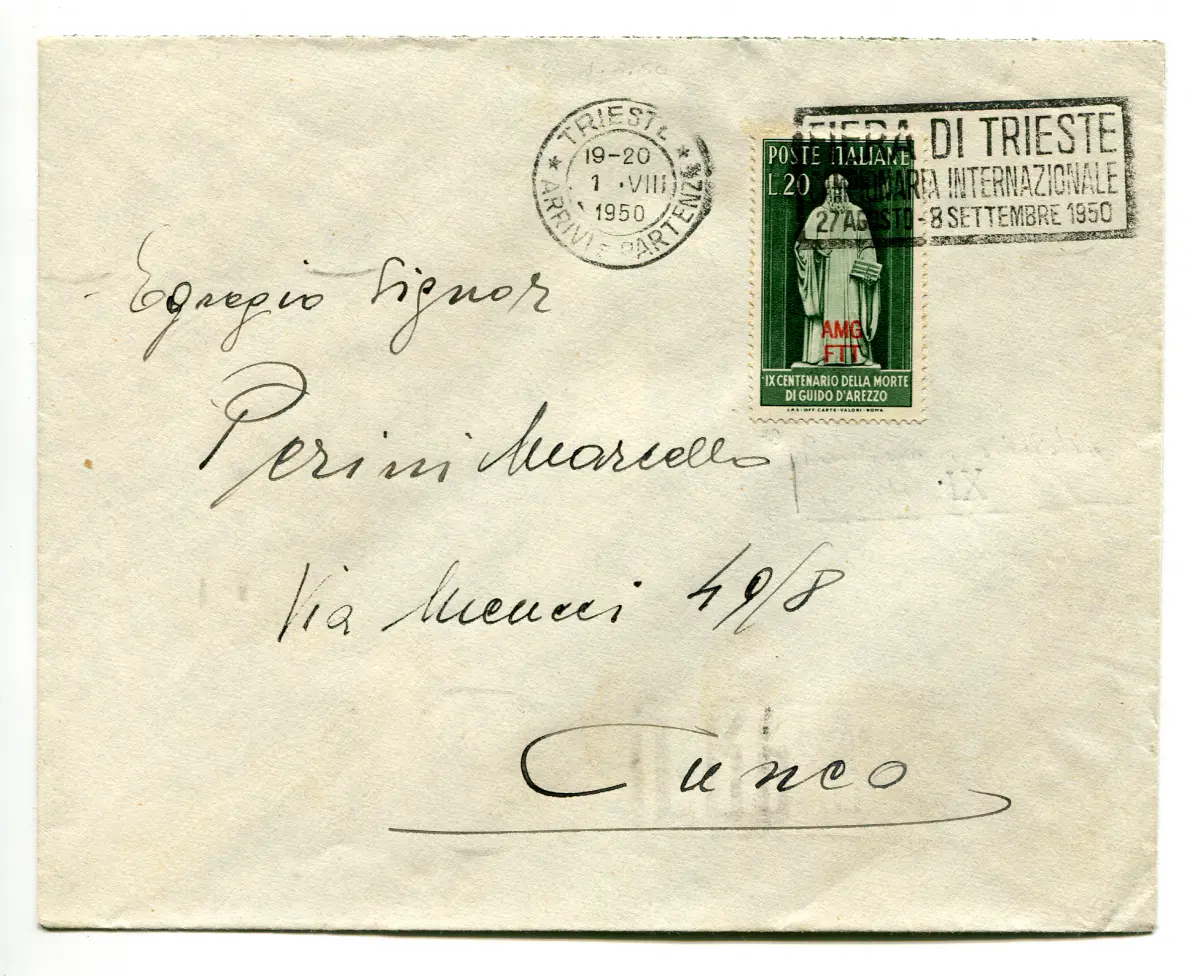 TRIESTE
19-20
1 .VIII
1950
ARRIVI = PARTENZ
FIERA DI TRIESTE
INTERNAZIONALE
27 AGOSTO - 8 SETTEMBRE 1950
POSTE ITALIANE
L.20
AMG
FTT
IX CENTENARIO DELLA MORTE
DI GUIDO D'AREZZO
I.P.S. - OFF. CARTE - VALORI - ROMA
Egregio Signor
Perini Marcello
Via Meucci 49/8
Cuneo
XI